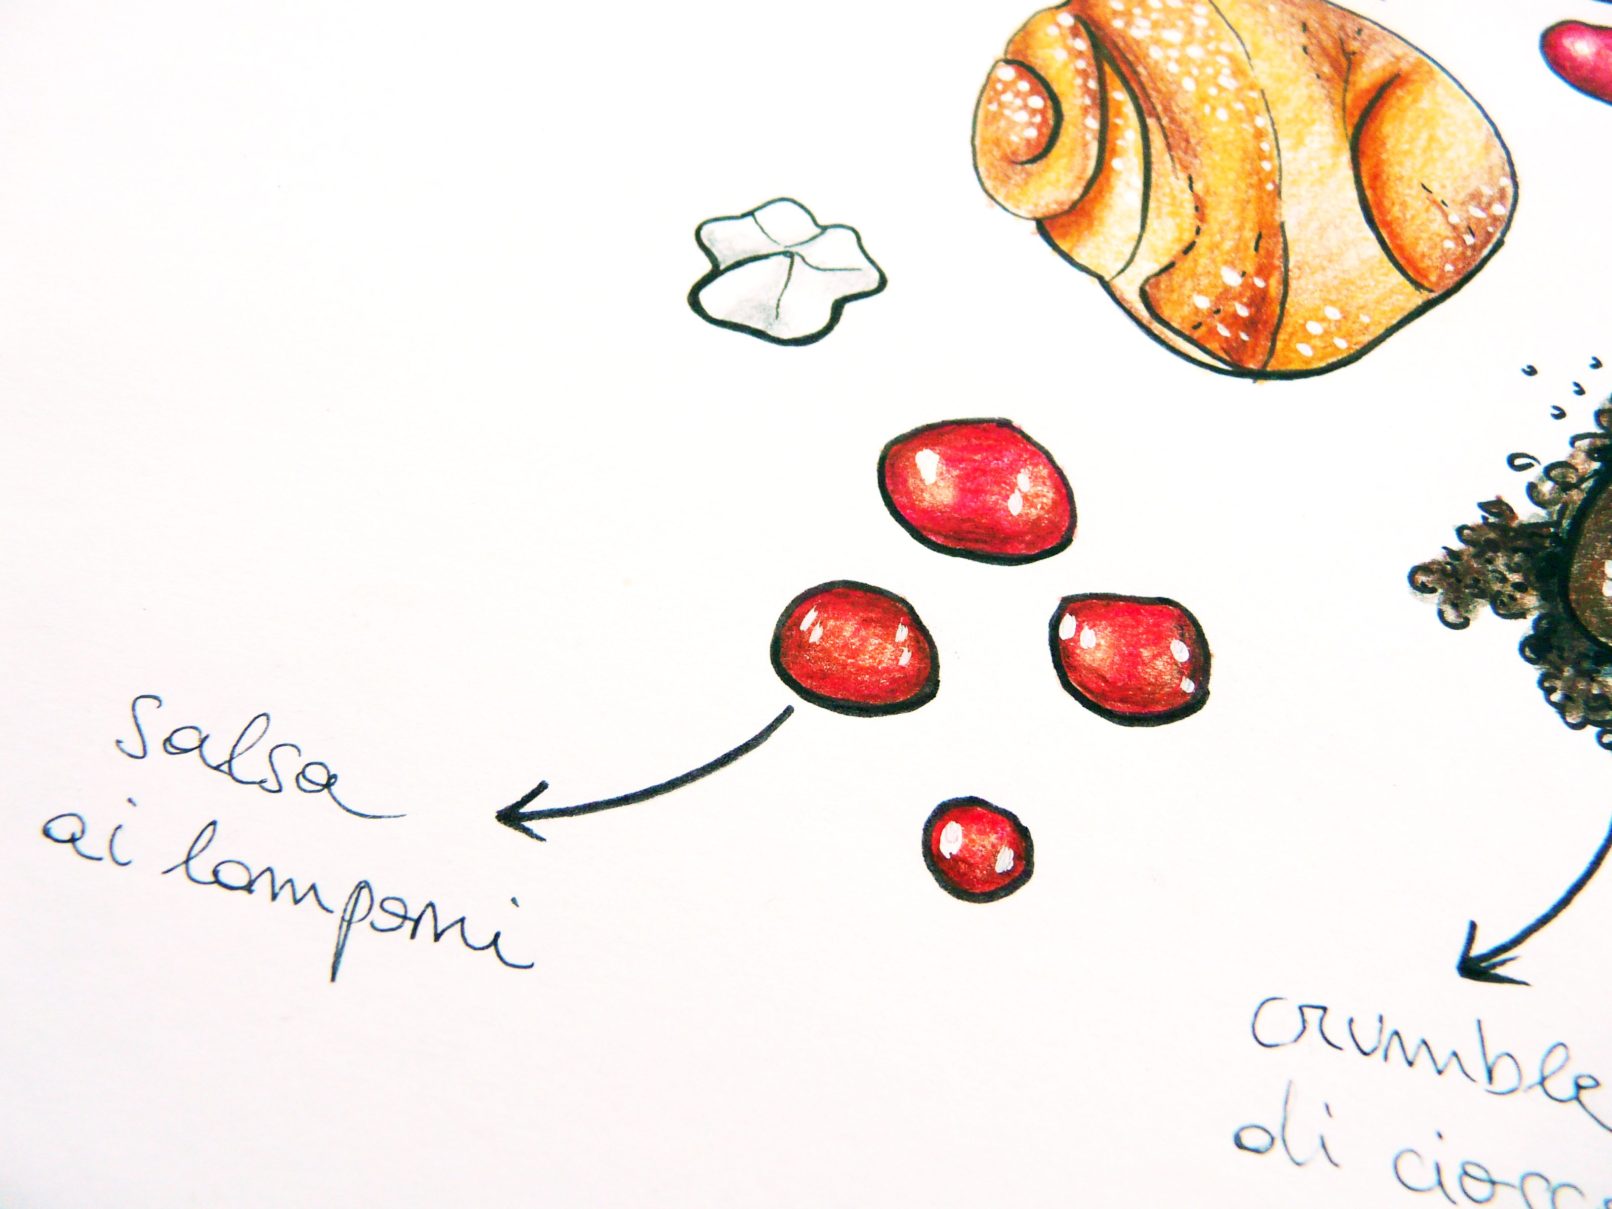 salsa
ai lamponi
crumble
di